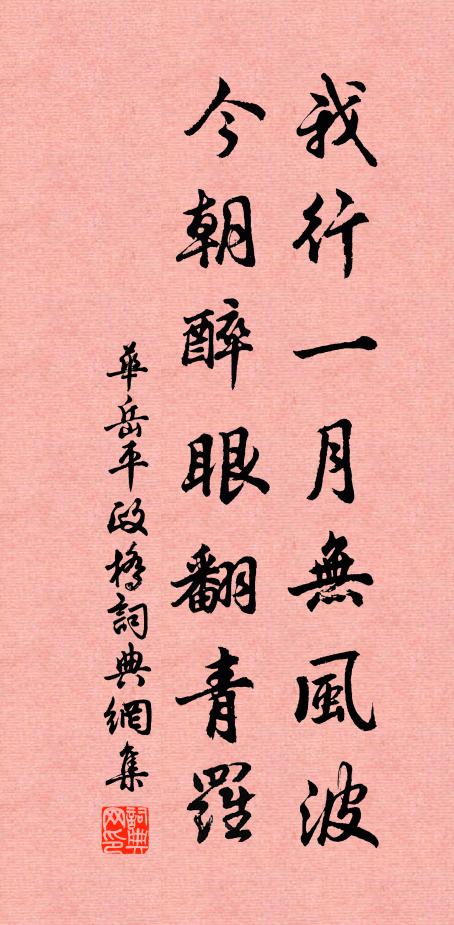 我行一月無風波
今朝醉眼翻青羅
華岳平政橋詞典網集
詞典网印